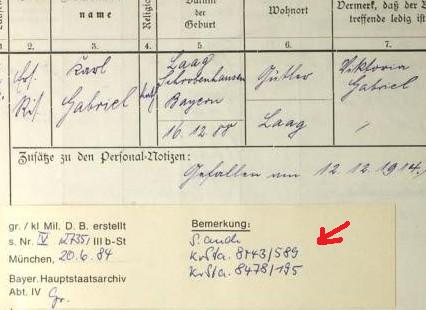 name
Religion
Datum
der
Geburt
Wohnort
Vermerk, daß der B
treffende ledig ist
2. 3. 4. 5. 6. 7.
Karl
Gabriel
kath
Laag
Schrobenhausen
Bayern
16.12.88
Gütler
Laag
Viktoria
Gabriel
"
Zusätze zu den Personal-Notizen:
Gefallen am 12.12.1914.
gr. / kl. Mil. D. B. erstellt
s. Nr. IV 2735/ III b-St
München, 20.6.84
Bayer. Hauptstaatsarchiv
Abt. IV Gr.
Bemerkung:
s. auch
KrSta. 8743/589
KrSta. 8478/195